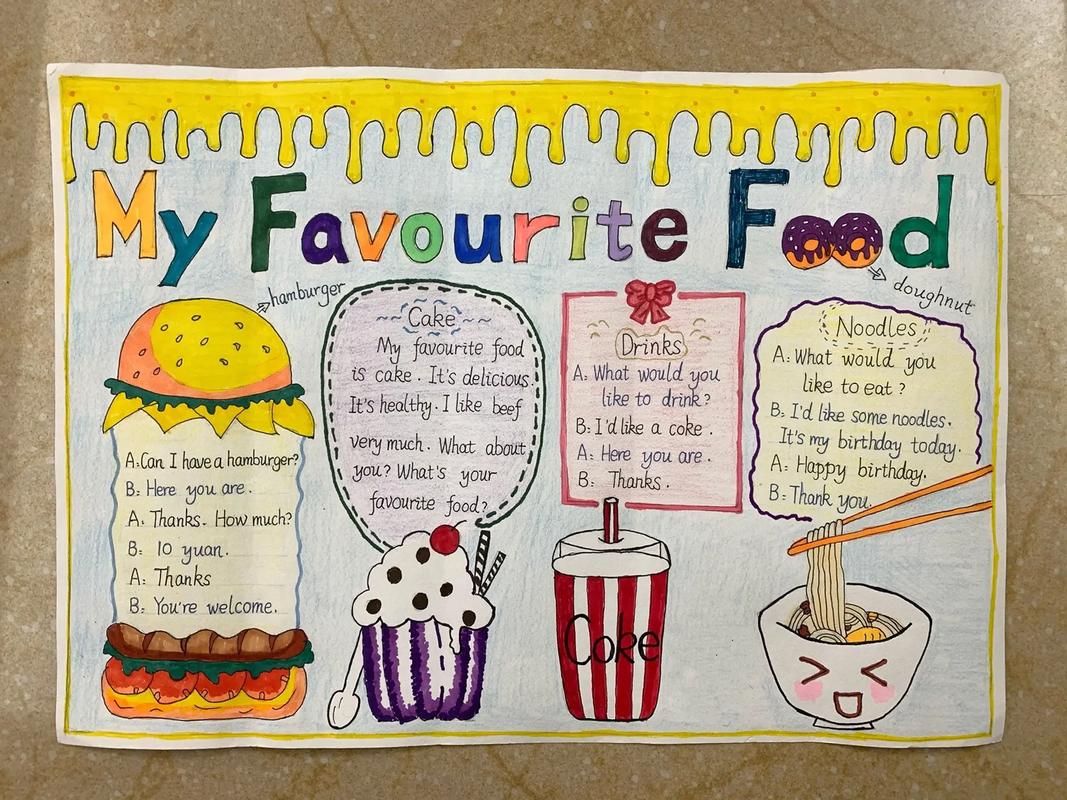 My Favourite Food
hamburger
doughnut
A: Can I have a hamburger?
B: Here you are.
A: Thanks. How much?
B: 10 yuan.
A: Thanks
B: You're welcome.
Cake
My favourite food
is cake. It's delicious.
It's healthy. I like beef
very much. What about
you? What's your
favourite food?
Drinks
A: What would you
like to drink?
B: I'd like a coke.
A: Here you are.
B: Thanks.
Coke
Noodles
A: What would you
like to eat?
B: I'd like some noodles.
It's my birthday today.
A: Happy birthday.
B: Thank you.